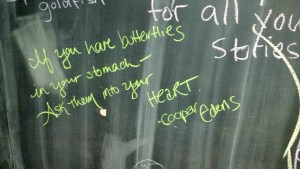 goldfish
for all you
stories
If you have butterflies
in your stomach-
Ask them into your HEART.
-cooper edens